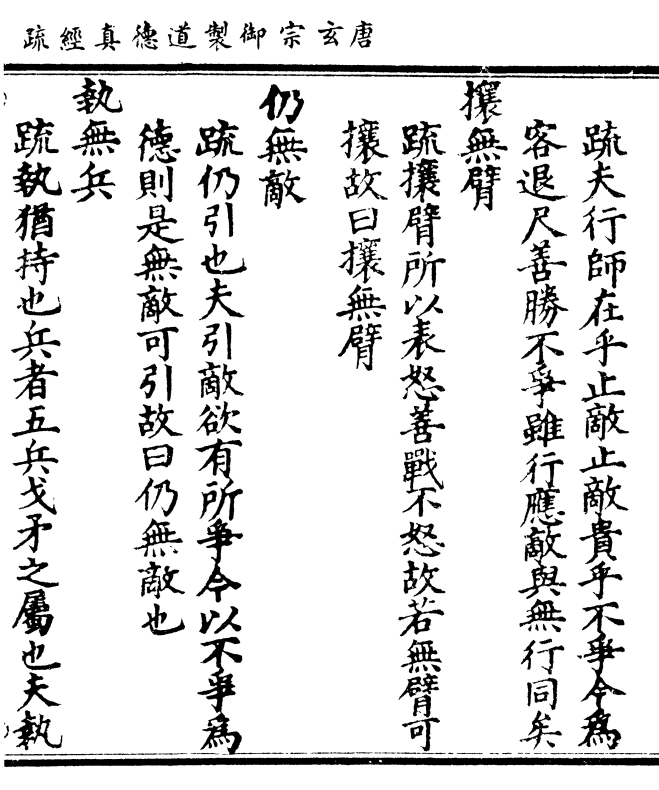 唐玄宗御製道德真經疏
疏夫行師在乎止敵止敵貴乎不爭今為
客退尺善勝不爭雖行應敵與無行同矣
攘無臂
疏攘臂所以表怒善戰不怒故若無臂可
攘故曰攘無臂
仍無敵
疏仍引也夫引敵欲有所爭今以不爭為
德則是無敵可引故曰仍無敵也
執無兵
疏執猶持也兵者五兵戈矛之屬也夫執